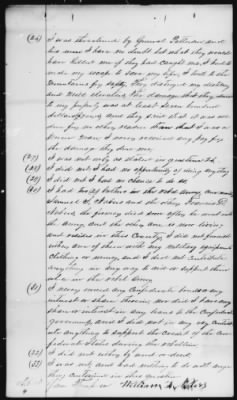 (26) I was threatened by General Pillow and
his men I have no doubt but what they would
have killed me if they had caught me, I had to
make my escape to save my life, I took to the
Mountains for safety. They destroyed my distillery
and Mill elevator. The damage that they done
to my property was at least seven hundred
dollars and they said that it was
for no other reason than that I was a
Union man. I never received any pay for
the damage they done me.
(27) I was not only as stated in question 26.
(28) I did not I had no opportunity of doing anything
(29) I did not I had no chance to do so
(30) I had two in the rebel army, one named
Samuel L. and the other Francis P.
the former died soon after he went into
the army and the other one is now living
and resides in this County, I did not furnish
either one of them with any military equipments
clothing or money, and I did not contribute
anything in any way to aid or support them
while in the rebel army
(31) I never owned any Confederate bonds or any
interest or share therein, nor did I have any
share or interest in any loans to the Confederate
government, and I did not in any way contribute
anything to support the credit of the Con-
federate States during the rebellion
(32) I did not either by aid or deed
(33) I was not, and had nothing to do with any
thing contained in this question
William